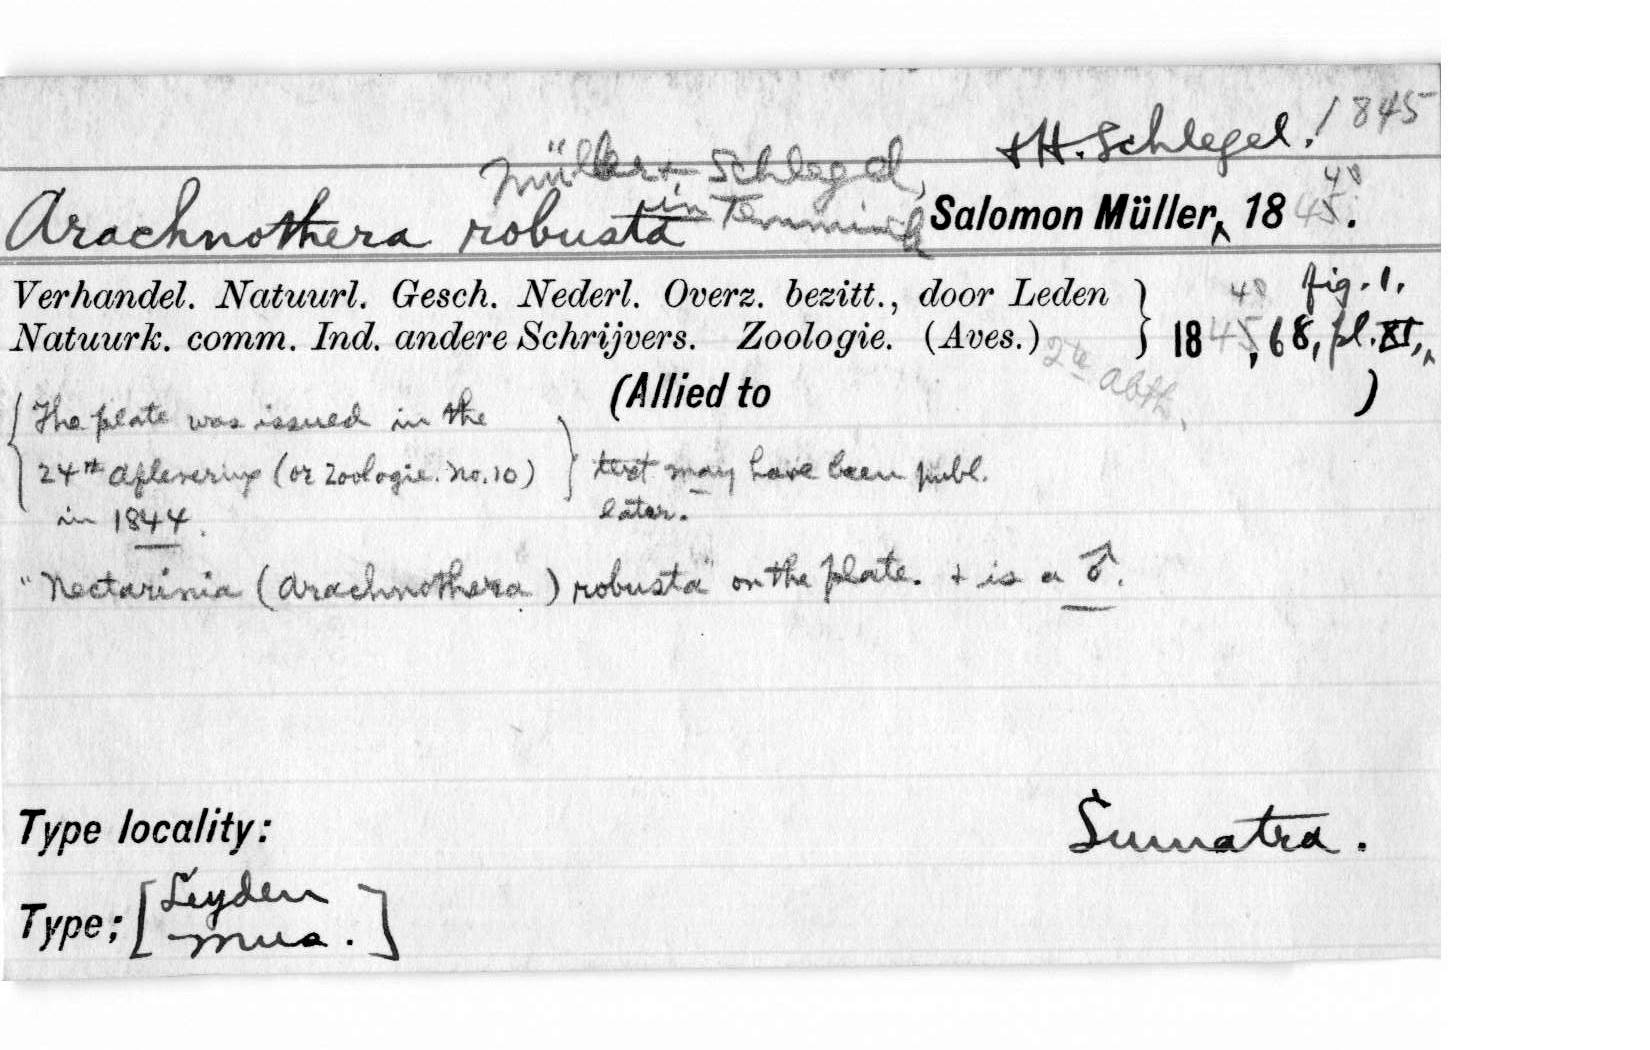 1845
+ H. Schlegel.
Müller + Schlegel,
in Temminck
48
Arachnothera robusta Salomon Müller, 1845.
Verhandel. Natuurl. Gesch. Nederl. Overz. bezitt., door Leden
48 fig. 1.
Natuurk. comm. Ind. andere Schrijvers. Zoologie. (Aves.) 1845, 68, pl. XI,
2te Abth.
(Allied to )
The plate was issued in the
24th Aflevering (or Zoologie. No. 10) text may have been publ.
in 1844. later.
"Nectarinia (Arachnothera) robusta" on the plate. + is a ♂.
Type locality: Sumatra.
Type; [Leyden
Mus.]